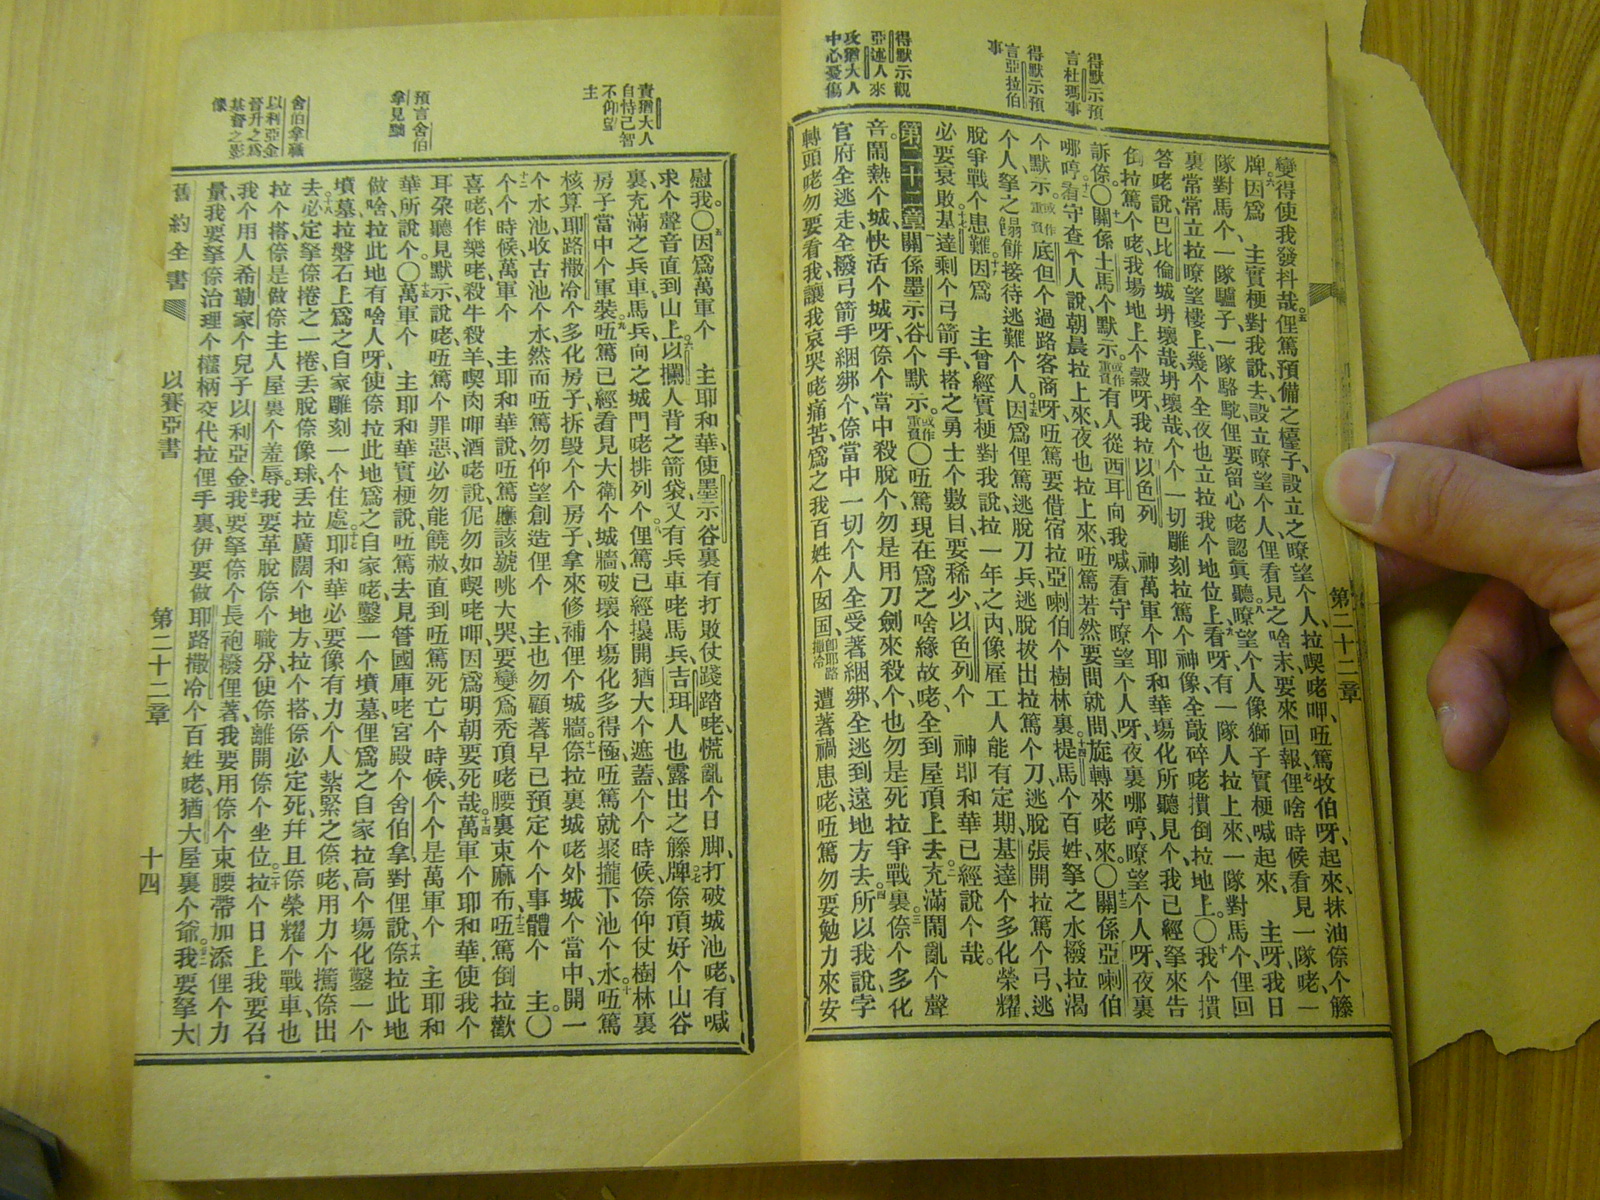 第二十二章
得默示預
言杜瑪事
得默示預
言亞拉伯
事
得默示觀
亞述人來
攻猶大人
中心憂傷
變得使我發抖哉俚篤預備之檯子、設立之瞭望个人、拉喫咾呷、呒篤牧伯呀、起來、抹油倷个籐
牌、因爲　主實梗對我說、去、設立瞭望个人、俚看見之啥末、要來回報俚、啥時候看見一隊咾一
隊對馬、个一隊驢子、一隊駱駝、俚要留心咾認眞聽、瞭望个人像獅子實梗喊起來、　主呀、我日
裏常常立拉瞭望樓上、幾个全夜也立拉我个地位上、看呀、有一隊人拉上來、一隊對馬个俚回
答咾說、巴比倫城坍壞哉、坍壞哉、个个一切雕刻拉篤个神像、全敲碎咾摜倒拉地上、○我个摜
倒拉篤个咾、我場地上个穀呀、我拉以色列　神萬軍个耶和華塲化所聽見个、我已經拏來告
訴倷、○關係土馬个默示、或作重責有人從西耳向我喊、看守瞭望个人呀、夜裏哪哼、瞭望个人呀、夜裏
哪哼、看守查个人說、朝晨拉上來、夜也拉上來、呒篤若然要問就問、旋轉來咾來、○關係亞喇伯
个默示、或作重責底但个過路客商呀、呒篤要借宿拉亞喇伯个樹林裏、提馬个百姓拏之水撥拉渴
个人、拏之餅接待逃難个人、因爲俚篤逃脫刀兵、逃脫拔出拉篤个刀、逃脫張開拉篤个弓、逃
脫爭戰个患難、因爲　主曾經實梗對我說、拉一年之內、像雇工人能有定期、基達个多化榮耀、
必要衰敗、基達剩个弓箭手搭之勇士个數目要稀少、以色列个　神耶和華已經說个哉、
第二十二章關係墨示谷个默示、或作重責○呒篤現在爲之啥緣故咾、全到屋頂上去、充滿鬧亂个聲
音、鬧熱个城、快活个城呀、倷个當中殺脫个、勿是用刀劍來殺个、也勿是死拉爭戰裏、倷个多化
官府全逃走、全撥弓箭手綑綁个、倷當中一切个人全受著綑綁、全逃到遠地方去、所以我說、孛
轉頭咾勿要看我、讓我哀哭咾痛苦、爲之我百姓个囡囯、卽耶路撒冷遭著禍患咾、呒篤勿要勉力來安
責猶大人
自恃己智
不仰望
主
預言舍伯
拿見黜
舍伯拿職
以利亞金
晉升之爲
基督之影
像
慰我、○因爲萬軍个　主耶和華、使墨示谷裏有打敗仗踐踏咾慌亂个日脚、打破城池咾、有喊
求个聲音直到山上、以攔人背之箭袋、又有兵車咾馬兵、吉珥人也露出之籐牌、倷頂好个山谷
裏、充滿之兵車、馬兵、向之城門咾排列个、俚篤已經攘開猶大个遮蓋、个个時候、倷仰仗樹林裏
房子當中个軍裝、呒篤已經看見大衛个城牆破壞个塲化多得極、呒篤就聚攏下池个水、呒篤
核算耶路撒冷个多化房子、拆毁个个房子、拿來修補俚个城牆、倷拉裏城咾外城个當中、開一
个水池、收古池个水、然而呒篤勿仰望創造俚个　主、也勿顧著早已預定个个事體个　主、○
个个時候、萬軍个　主耶和華說、呒篤應該號咷大哭、要變爲禿頂咾、腰裏束麻布、呒篤倒拉歡
喜咾作樂咾、殺牛殺羊、喫肉呷酒咾說、伲勿如喫咾呷、因爲明朝要死哉、萬軍个耶和華、使我个
耳朶聽見默示說咾、呒篤个罪惡、必勿能饒赦、直到呒篤死亡个時候、个个是萬軍个　主耶和
華所說个、○萬軍个　主耶和華實梗說、呒篤去見管國庫咾宮殿个舍伯拿、對俚說、倷拉此地
做啥、拉此地有啥人呀、使倷拉此地爲之自家咾、鑿一个墳墓、俚爲之自家拉高个塲化鑿一个
墳墓、拉磐石上爲之自家雕刻一个住處、耶和華必要像有力个人紥緊之倷咾、用力个擕倷出
去、必定拏倷捲之一捲、丟脫倷像球、丟拉廣闊个地方、拉个搭倷必定死、幷且倷榮耀个戰車、也
拉个搭、倷是做倷主人屋裏个羞辱、我要革脫倷个職分、使倷離開倷个坐位、拉个日上、我要召
我个用人希勒家个兒子以利亞金、我要拏倷个長袍撥俚著、我要用倷个束腰帶加添俚个力
量、我要拏倷治理个權柄交代拉俚手裏、伊要做耶路撒冷个百姓咾猶大屋裏个爺、我要拏大
舊約全書
以賽亞書
第二十二章
十四